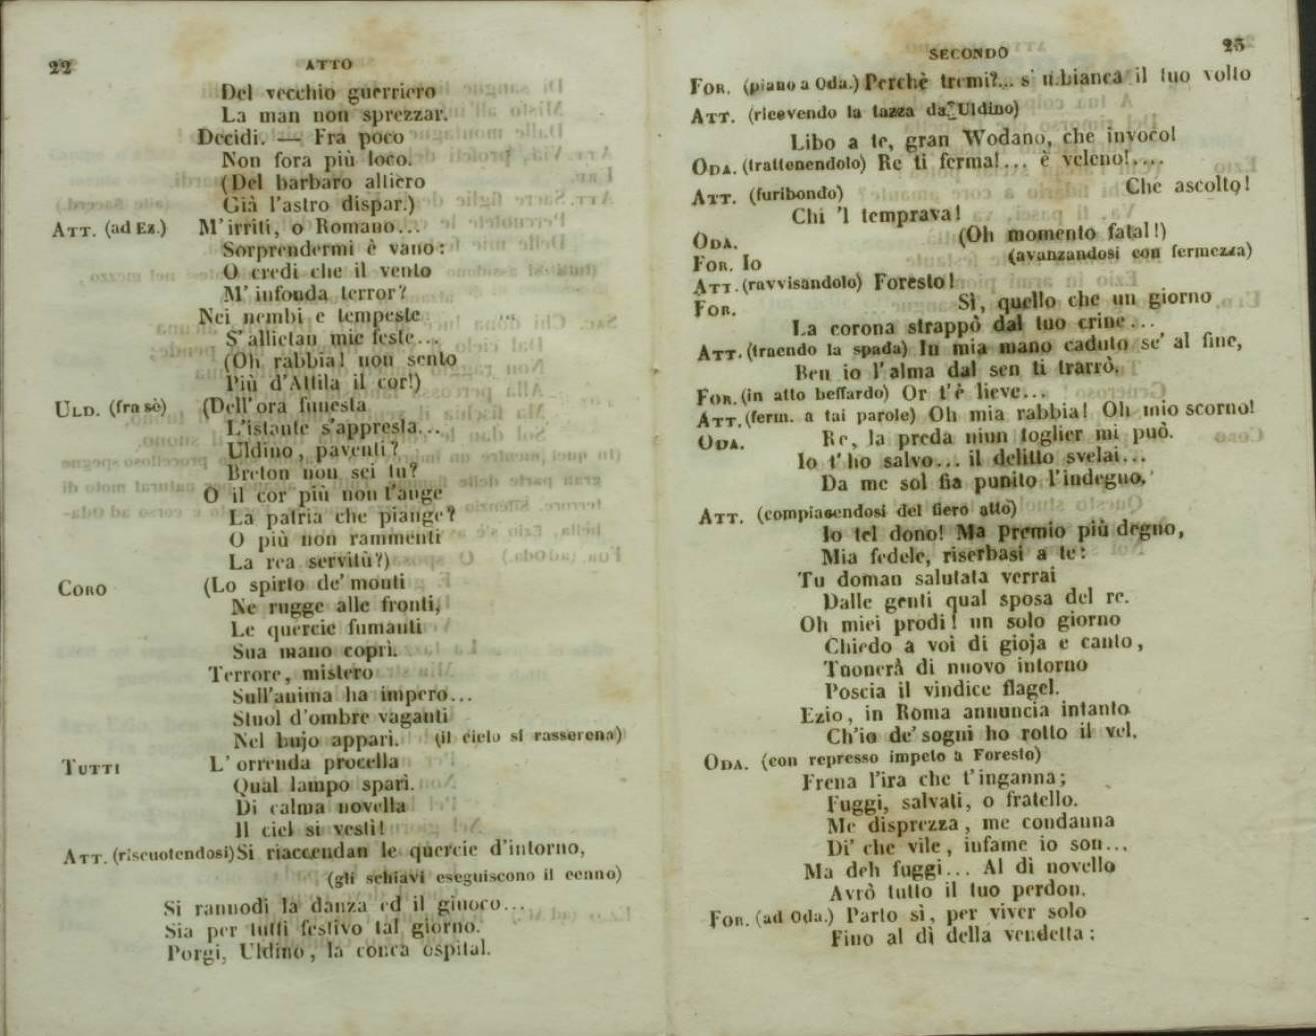 22
ATTO
Del vecchio guerriero
La man non sprezzar.
Decidi. — Fra poco
Non fora più loco.
(Del barbaro altiero
Già l'astro dispar.)
ATT. (ad Ez.) M'irriti, o Romano...
Sorprendermi è vano:
O credi che il vento
M'infonda terror?
Nei nembi e tempeste
S'allietan mie feste...
(Oh rabbia! non sento
Più d'Attila il cor!)
ULD. (fra sè) (Dell'ora funesta
L'istante s'appresta...
Uldino, paventi?
Breton non sei tu?
O il cor più non t'ange
La patria che piange?
O più non rammenti
La rea servitù?)
CORO (Lo spirto de' monti
Ne rugge alle fronti,
Le quercie fumanti
Sua mano coprì.
Terrore, mistero
Sull'anima ha impero...
Stuol d'ombre vaganti
Nel bujo apparì. (il cielo si rasserena)
TUTTI L'orrenda procella
Qual lampo sparì.
Di calma novella
Il ciel si vestì!
ATT. (riscuotendosi) Si riaccendan le quercie d'intorno,
(gli schiavi eseguiscono il cenno)
Si rannodi la danza ed il giuoco...
Sia per tutti festivo tal giorno.
Porgi, Uldino, la conca ospital.
SECONDO
23
FOR. (piano a Oda.) Perchè tremi?... s'imbianca il tuo volto
ATT. (ricevendo la tazza da Uldino)
Libo a te, gran Wodano, che invoco!
ODA. (trattenendolo) Re ti ferma!... è veleno!....
ATT. (furibondo) Che ascolto!
Chi 'l temprava!
ODA. (Oh momento fatal!)
FOR. Io (avanzandosi con fermezza)
ATT. (ravvisandolo) Foresto!
FOR. Sì, quello che un giorno
La corona strappò dal tuo crine...
ATT. (traendo la spada) In mia mano caduto se' al fine,
Ben io l'alma dal sen ti trarrò.
FOR. (in atto beffardo) Or t'è lieve...
ATT. (ferm. a tai parole) Oh mia rabbia! Oh mio scorno!
ODA. Re, la preda niun toglier mi può.
Io t'ho salvo... il delitto svelai...
Da me sol fia punito l'indegno.
ATT. (compiacendosi del fiero atto)
Io tel dono! Ma premio più degno,
Mia fedele, riserbasi a te:
Tu doman salutata verrai
Dalle genti qual sposa del re.
Oh miei prodi! un solo giorno
Chiedo a voi di gioja e canto,
Tuonerà di nuovo intorno
Poscia il vindice flagel.
Ezio, in Roma annuncia intanto
Ch'io de' sogni ho rotto il vel.
ODA. (con represso impeto a Foresto)
Frena l'ira che t'inganna;
Fuggi, salvati, o fratello.
Me disprezza, me condanna
Di' che vile, infame io son...
Ma deh fuggi... Al dì novello
Avrò tutto il tuo perdon.
FOR. (ad Oda.) Parto sì, per viver solo
Fino al dì della vendetta: